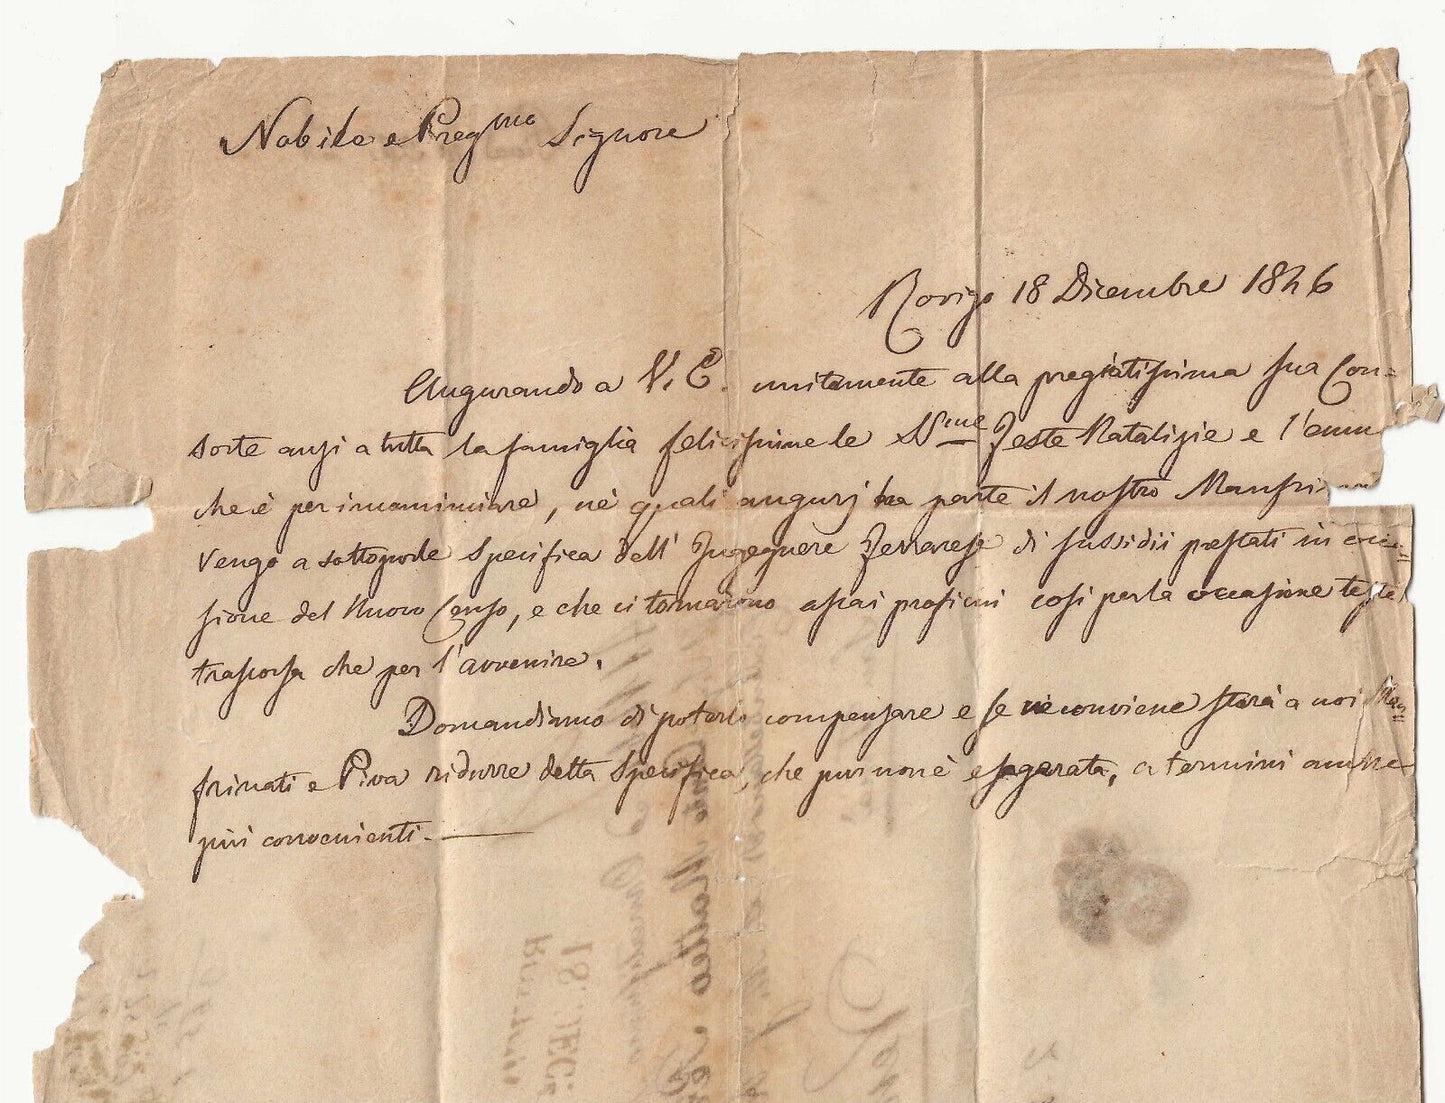 Nobile e Preg^mo Signore
Rovigo 18 Dicembre 1846
Augurando a V. E. unitamente alla pregiatissima sua Con=
sorte anzi a tutta la famiglia felicissime le SS^me Feste Natalizie e l'anno
che è per incominciare, nè quali augurj ha parte il nostro Manfrinati
Vengo a sottoporle Specifica dell' Ingegnere Ferrarese di sussidii prestati in occa=
sione del Nuovo Censo, e che ci tornarono assai proficui così per la occasione testè
trascorsa che per l'avvenire.
Domandiamo di poterlo compensare e se ne conviene starà a noi Man=
frinati e Piva ridurre detta Specifica, che pur non è esagerata, a termini anche
più convenienti.